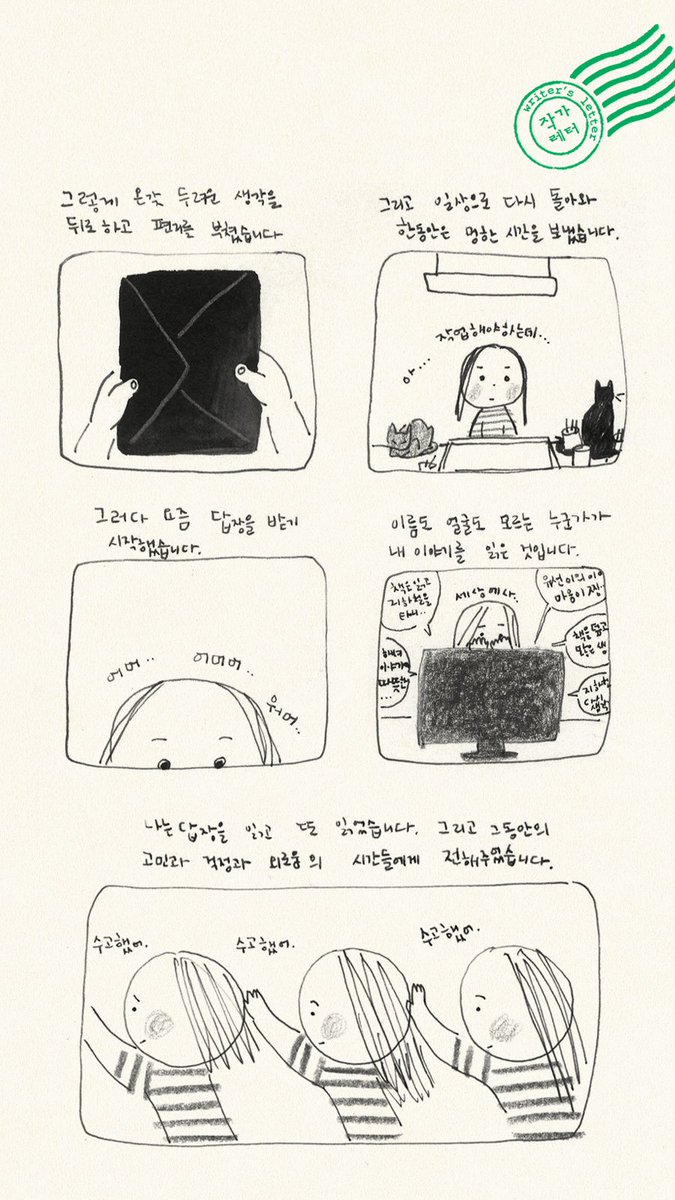 writer's letter
작가
레터
그렇게 온갖 두려운 생각을
뒤로하고 편지를 부쳤습니다
그리고 일상으로 다시 돌아와
한동안은 멍한 시간을 보냈습니다.
아....
작업해야하는데...
그러다 요즘 답장을 받기
시작했습니다.
어머..
어머머..
워머..
이름도 얼굴도 모르는 누군가가
내 이야기를 읽은 것입니다.
책을 읽고
지하철을
타니..
세상에사..
마음이 찡
책을 덮고
많은 생
이야기
따뜻한
...
지하철
나는 답장을 읽고 또 읽었습니다. 그리고 그동안의
고민과 걱정과 외로움의 시간들에게 전해주었습니다.
수고했어.
수고했어.
수고했어.